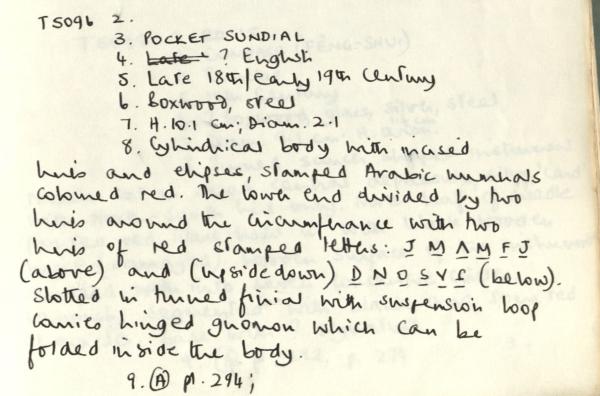 TS096 2.
3. POCKET SUNDIAL
4. Late ? English
5. Late 18th/early 19th Century
6. Boxwood, steel
7. H. 10.1 cm; Diam. 2.1
8. Cylindrical body with incised
lines and elipses, stamped Arabic numerals
coloured red. The lower end divided by two
lines around the circumferance with two
lines of red stamped letters: J M A M F J
(above) and (upside down) D N O S V I (below).
Slotted in turned finial with suspension loop
carries hinged gnomon which can be
folded inside the body
9. (A) p1. 294;